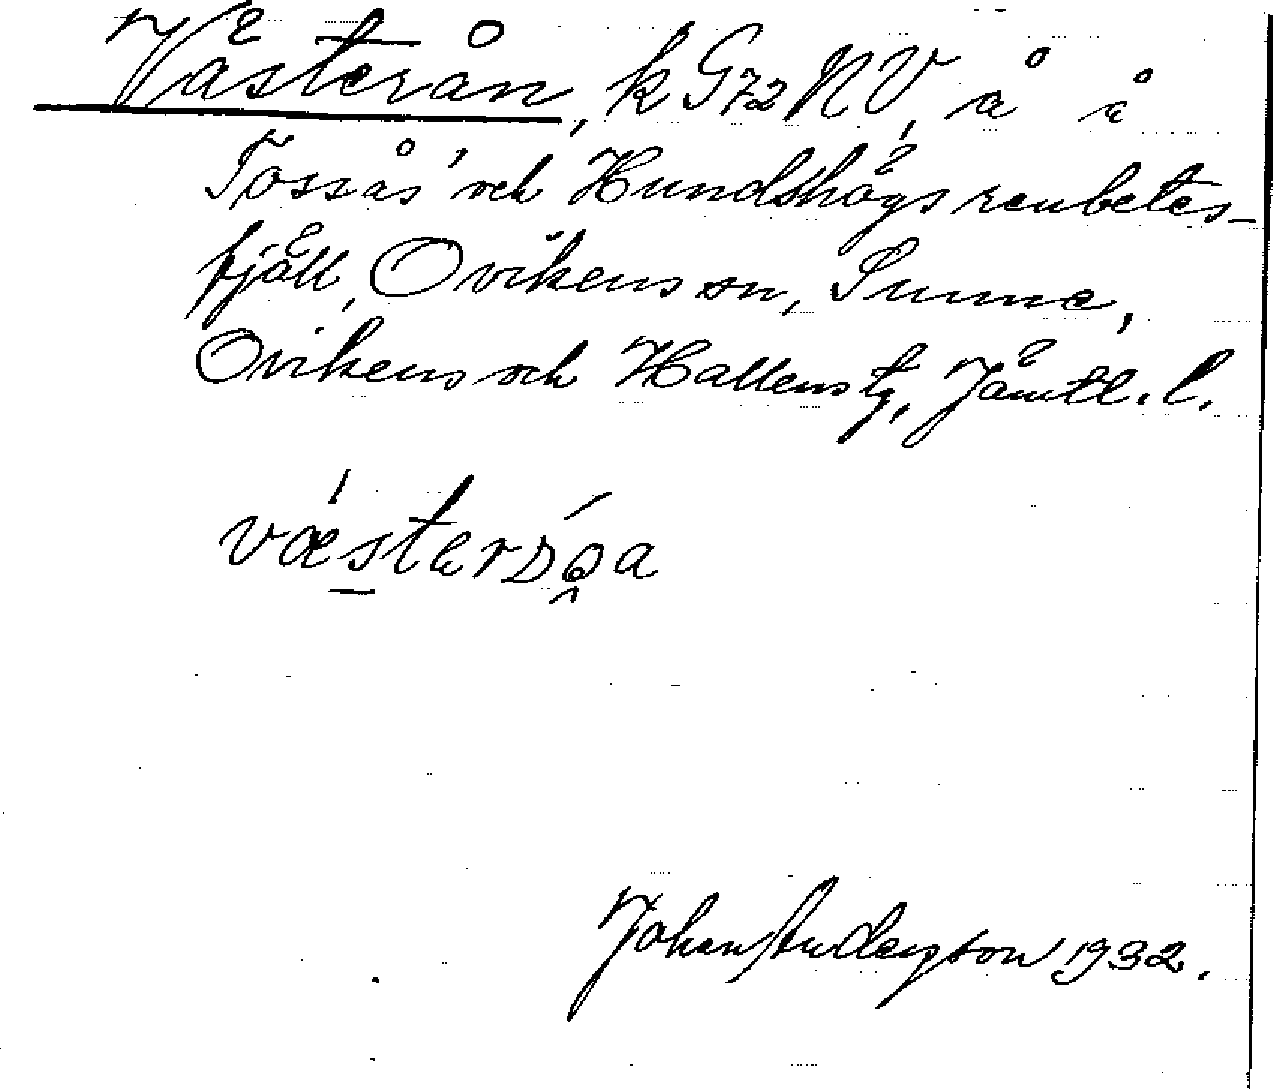 Västerån, k G72 NV, å å
Tossås' och Hundshögs renbetes-
fjäll, Ovikens sn, Sunne,
Ovikens och Hallens tg, Jämtl. l.
vǽstərɔ́a
Johan Anderson 1932.